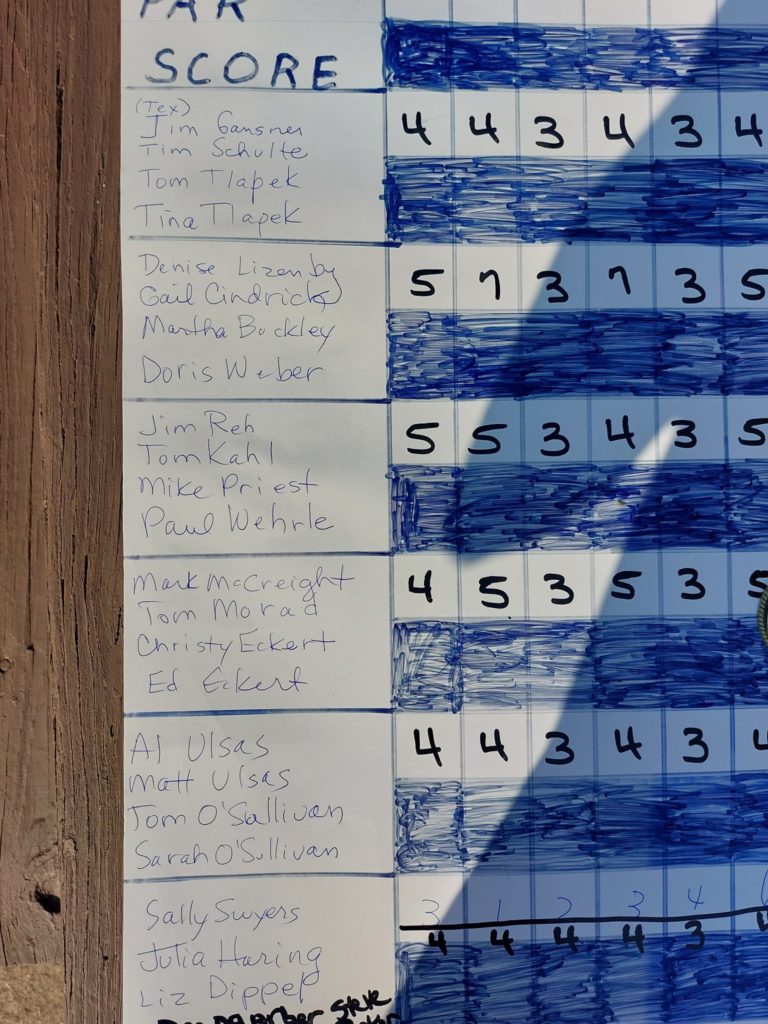 PAR
SCORE
(Tex)
Jim Gansner 4 4 3 4 3 4
Tim Schulte
Tom Tlapek
Tina Tlapek
Denise Lizenby 5 7 3 7 3 5
Gail Cindrick
Martha Buckley
Doris Weber
Jim Reh 5 5 3 4 3 5
Tom Kahl
Mike Priest
Paul Wehrle
Mark McCreight 4 5 3 5 3 5
Tom Morad
Christy Eckert
Ed Eckert
Al Ulsas 4 4 3 4 3 4
Matt Ulsas
Tom O'Sullivan
Sarah O'Sullivan
Sally Swyers 3 1 2 3 4
4 4 4 4 3 4
Julia Haring
Liz Dippel
Steve